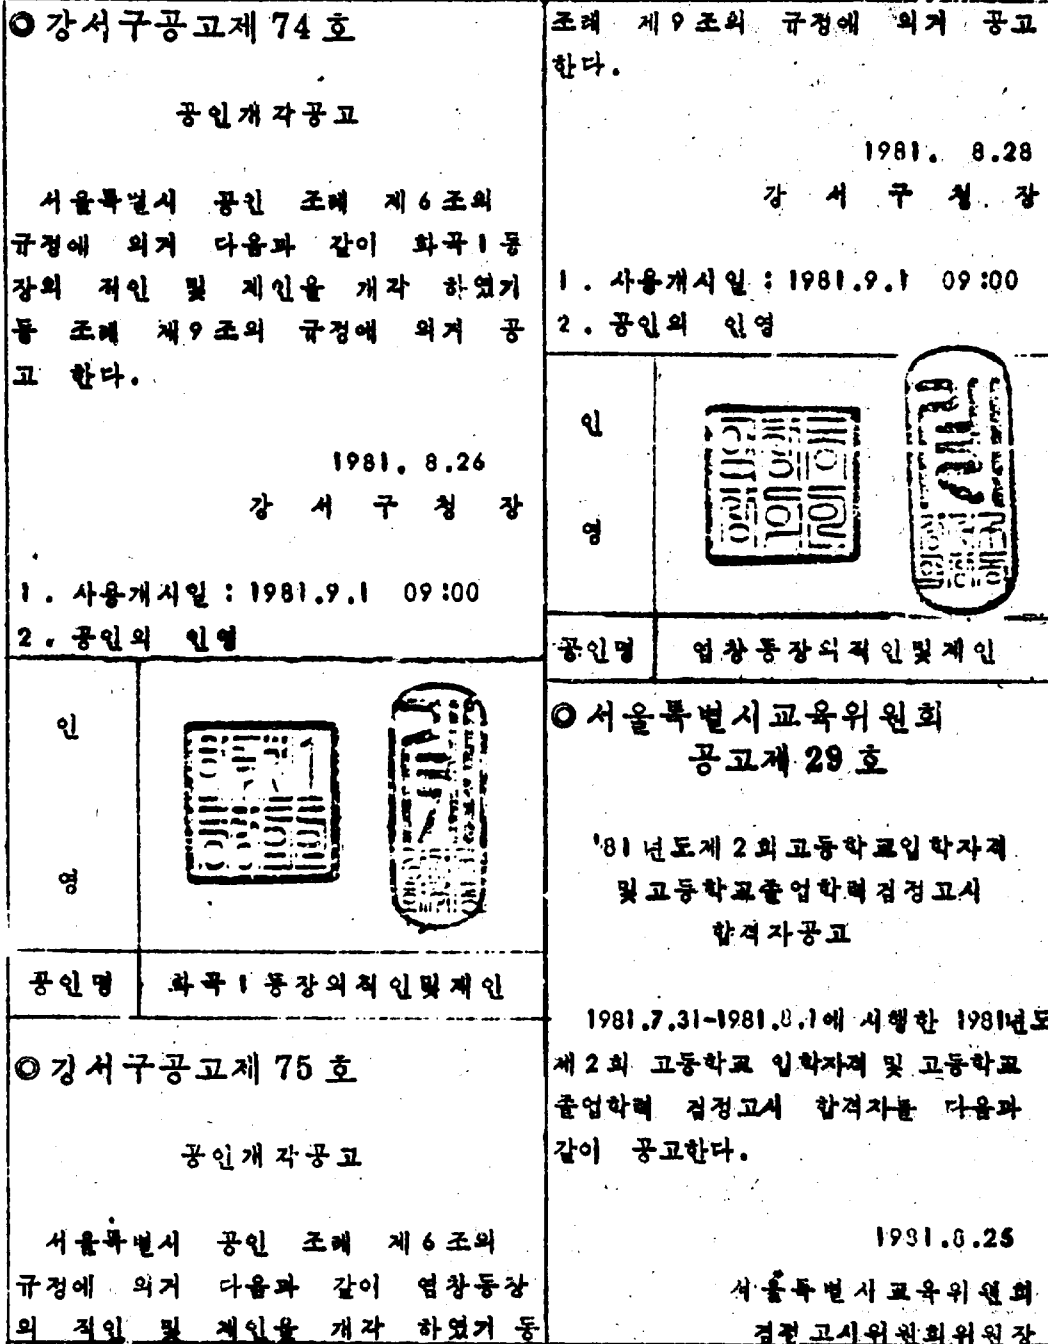 ◎ 강서구공고제 74 호
공인개각공고
서울특별시 공인 조례 제 6 조의
규정에 의거 다음과 같이 화곡 1 동
장의 직인 및 계인을 개각 하였기
동 조례 제 9 조의 규정에 의거 공
고 한다.
1981. 8.26
강 서 구 청 장
1. 사용개시일 : 1981.9.1 09:00
2. 공인의 인영
인
영
공인명 화곡 1 동장의직인및계인
◎ 강서구공고제 75 호
공인개각공고
서울특별시 공인 조례 제 6 조의
규정에 의거 다음과 같이 염창동장
의 직인 및 계인을 개각 하였기 동
조례 제 9 조의 규정에 의거 공고
한다.
1981. 8.28
강 서 구 청 장
1. 사용개시일 : 1981.9.1 09:00
2. 공인의 인영
인
영
공인명 염창동장의직인및계인
◎ 서울특별시교육위원회
공고제 29 호
'81 년도제 2 회고등학교입학자격
및고등학교졸업학력검정고시
합격자공고
1981.7.31-1981.8.1에 시행한 1981년도
제 2 회 고등학교 입학자격 및 고등학교
졸업학력 검정고시 합격자를 다음과
같이 공고한다.
1981.8.25
서울특별시교육위원회
검정고시위원회위원장